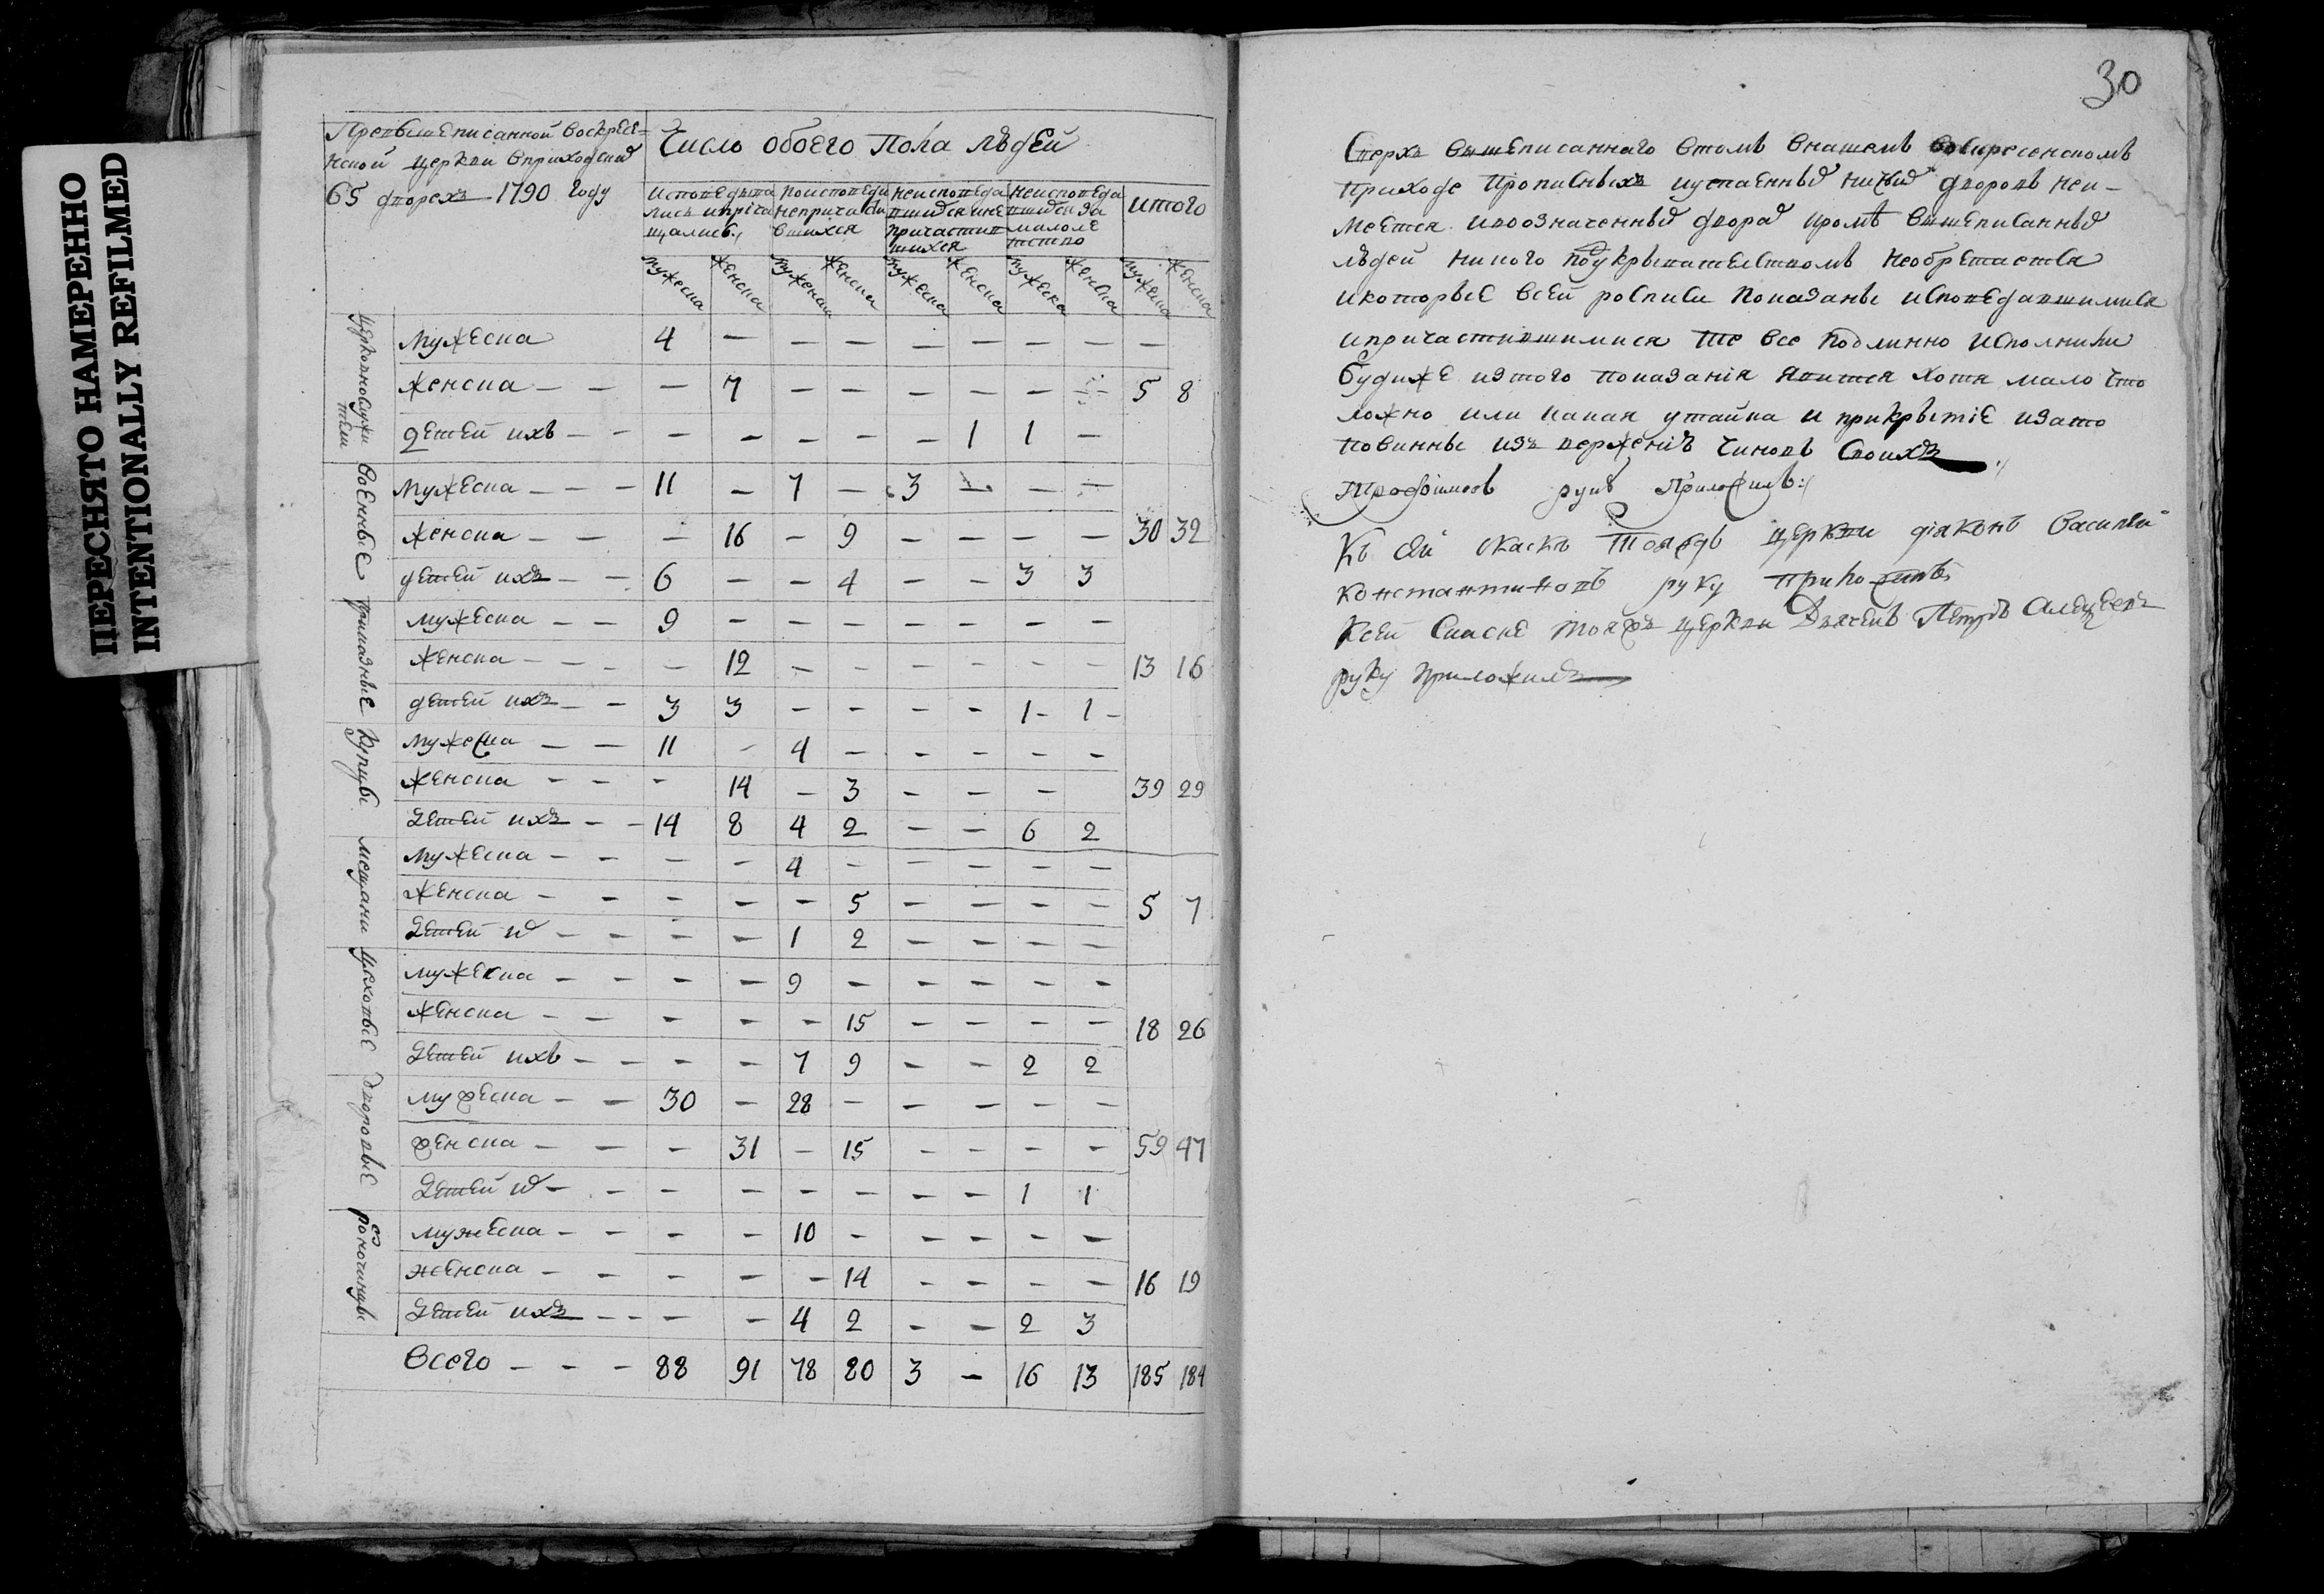 ПЕРЕСНЯТО НАМЕРЕННО
INTENTIONALLY REFILMED
30
Превышеписанной воскресе-
нской церкви вприходских
65 дворехъ 1790 году
Число обоего Пола людей
Исповедыва
лись ипрiча
щались
Поисповеди
непричасти
вшихся
Неисповеда
вшихся ине
причастив
шихся
Неисповеда
вшихся за
малоле
тство
итого
мужеска женска мужеска женска мужеска женска мужеска женска мужеска женска
церковнослужи
тели
мужеска 4 — — — — — — — — —
женска — — — 7 — — — — — — 5 8
детей ихъ — — — — — — — 1 1 —
военные
мужеска — — — 11 — 7 — 3 — — —
женска — — — 16 — 9 — — — — 30 32
детей ихъ — — 6 — — 4 — — 3 3
приказные
мужеска — — 9 — — — — — — —
женска — — — — 12 — — — — — — 13 16
детей ихъ — — 3 3 — — — — 1 — 1 —
Купцы
мужеска — — 11 — 4 — — — — —
женска — — — 14 — 3 — — — 39 29
детей ихъ — — 14 8 4 2 — — 6 2
мещани
мужеска — — — — 4 — — — — —
женска — — — — — 5 — — — — 5 7
детей их — — — — 1 2 — — — —
цеховые
мужеска — — — — 9 — — — — —
женска — — — — — 15 — — — — 18 26
детей ихъ — — — — 7 9 — — 2 2
дворовые
мужеска — — 30 — 28 — — — — —
женска — — — 31 — 15 — — — — 59 47
детей их — — — — — — — — 1 1
розночинцы
мужеска — — — — 10 — — — — —
женска — — — — — 14 — — — — 16 19
детей ихъ — — — — 4 2 — — 2 3
Всего — — — 88 91 78 80 3 — 16 13 185 184
Сверхъ вышеписаннаго втомъ внашемъ воскресенскомъ
приходе прописныхъ иутаенных никаких дворовъ неи-
меется ивоозначенных дворах кромѣ вышеписанных
людей никого подукрывателствомъ необретается
икоторые всей росписи показаны исповедавшимися
ипричастившимися те все подлинно исполнили
будиже изтого показанiя явится хотя мало что
ложно или какая утайка и прикрытiе изато
повинны извержению чиновъ своихъ
Трофимовъ руку приложилъ
Къ сей скаскѣ тояжъ церкви дiяконъ Василей
Константиновъ руку приложилъ
Ксей скаске тояжъ церкви дьячекъ Петръ Алеѯеевъ
руку приложилъ